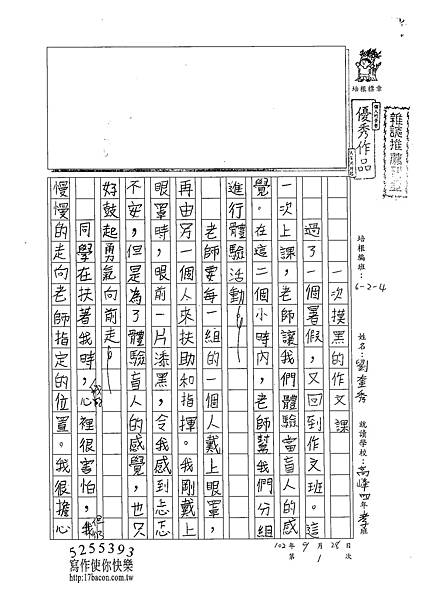 雜談推薦
優秀作品
培根標章
培根編班：6-2-4
姓名：劉奎秀
就讀學校：高峰四年孝班
102年9月28日
第1次
一次摸黑的作文課
過了一個暑假，又回到作文班。這
一次上課，老師讓我們體驗當盲人的感
覺。在這二個小時內，老師幫我們分組
進行體驗活動。
老師要每一組的一個人戴上眼罩，
再由另一個人來扶助和指揮。我剛戴上
眼罩時，眼前一片漆黑，令我感到忐忑
不安，但是為了體驗盲人的感覺，也只
好鼓起勇氣向前走。
同學在扶著我時，心裡很害怕，我
慢慢的走向老師指定的位置。我很擔心
5255393
寫作使你快樂
http://17bacon.com.tw